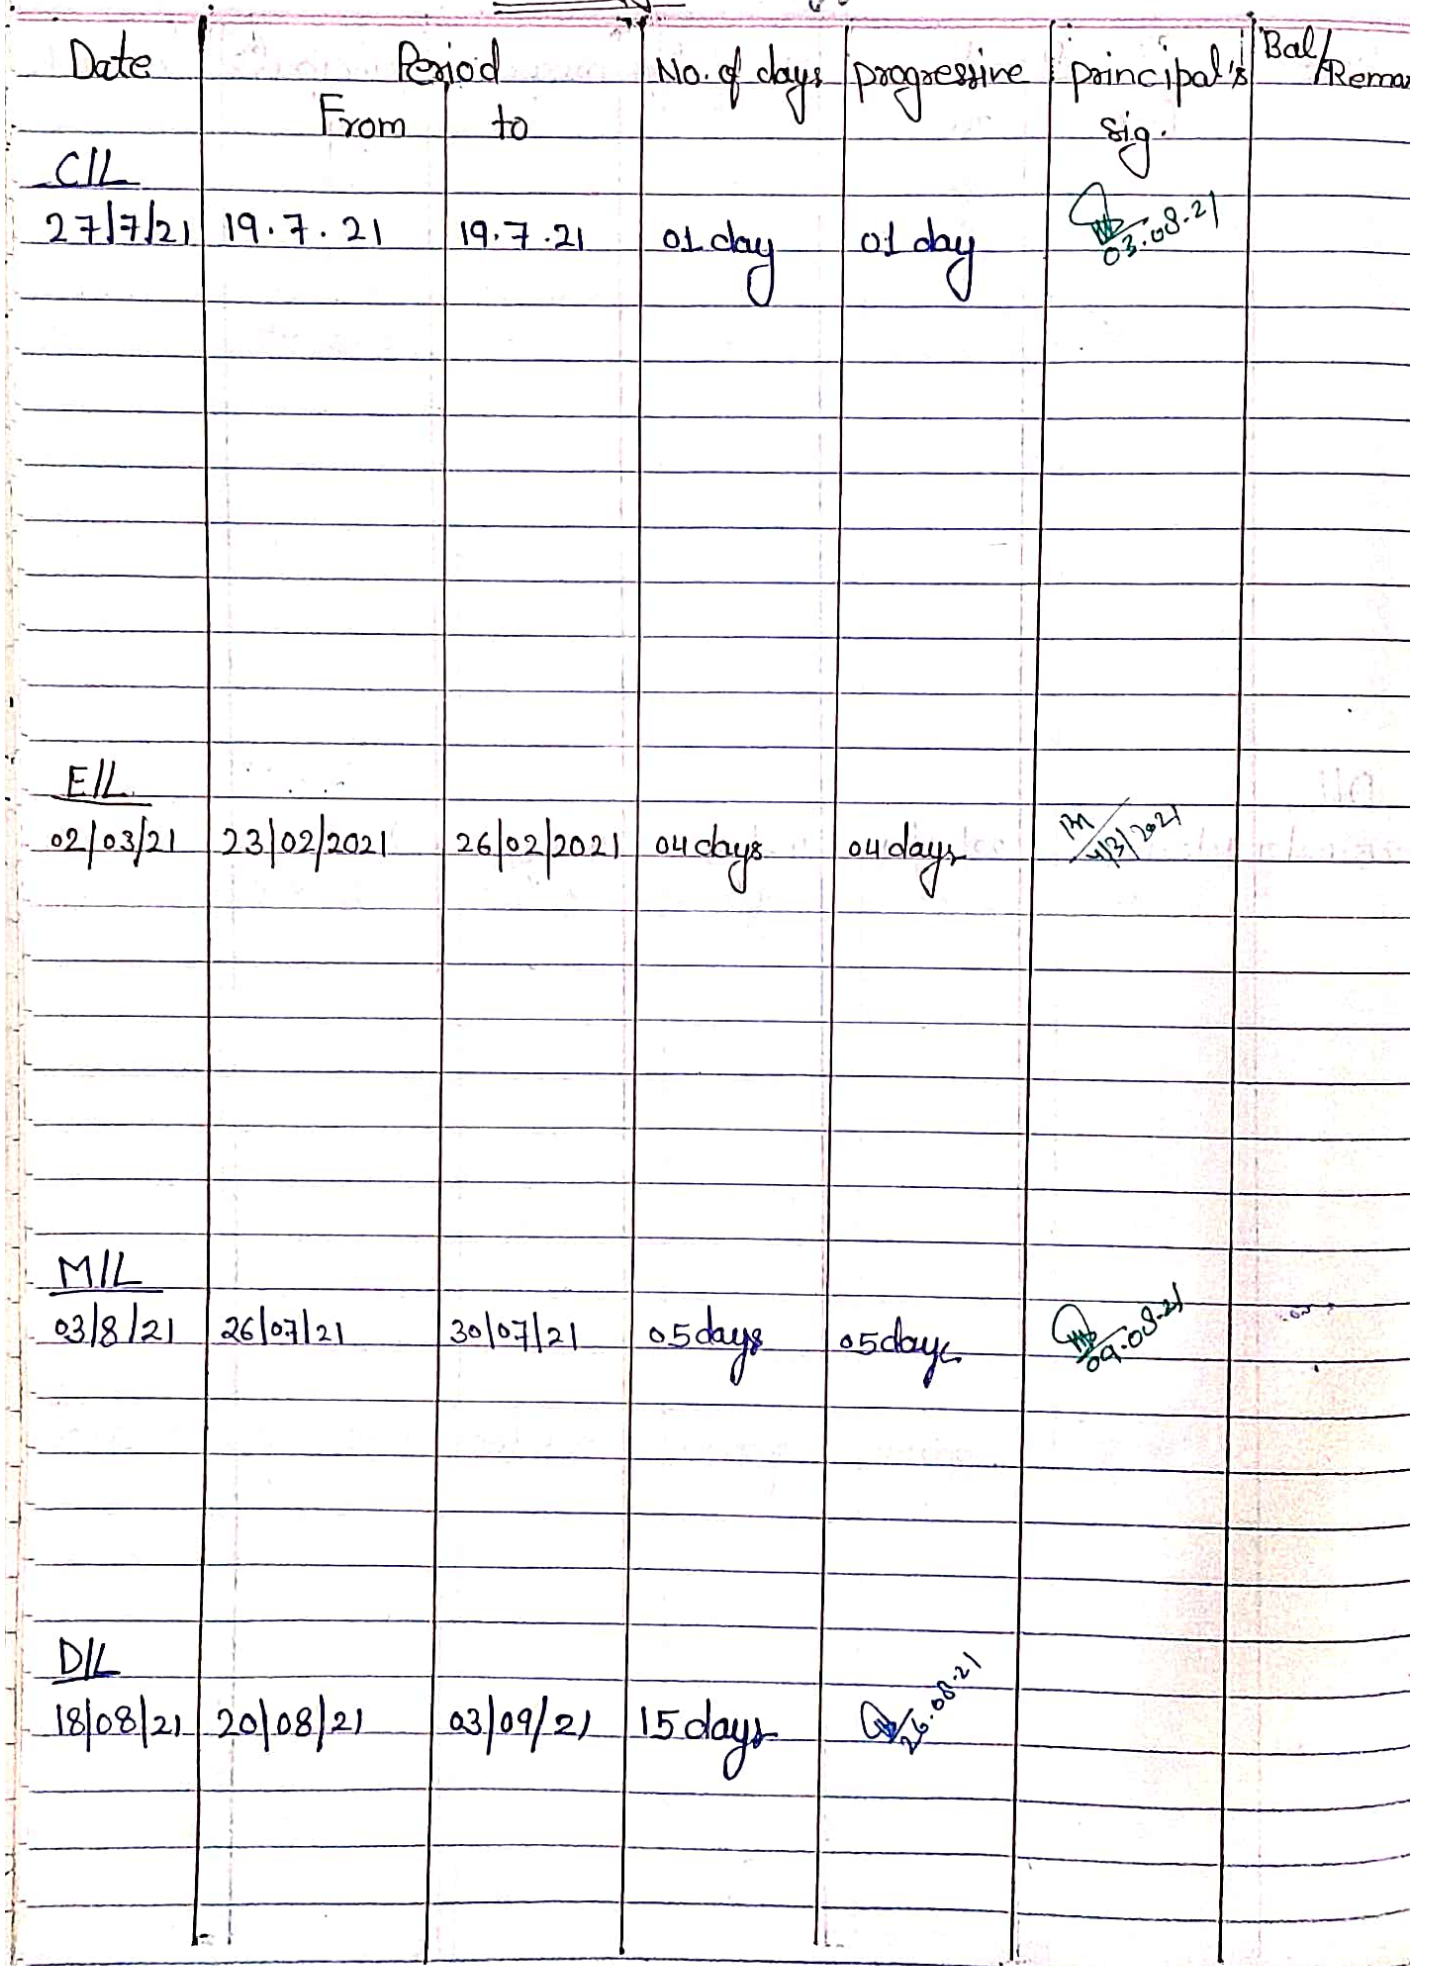 Date Period No. of days progressive principal's Bal/Rema
From to sig.
C/L
27/7/21 19.7.21 19.7.21 01 day 01 day 03.08.21
E/L
02/03/21 23/02/2021 26/02/2021 04 days 04 days 4/3/2021
M/L
03/8/21 26/07/21 30/07/21 05 days 05 days 09.08.21
D/L
18/08/21 20/08/21 03/09/21 15 days 26.08.21